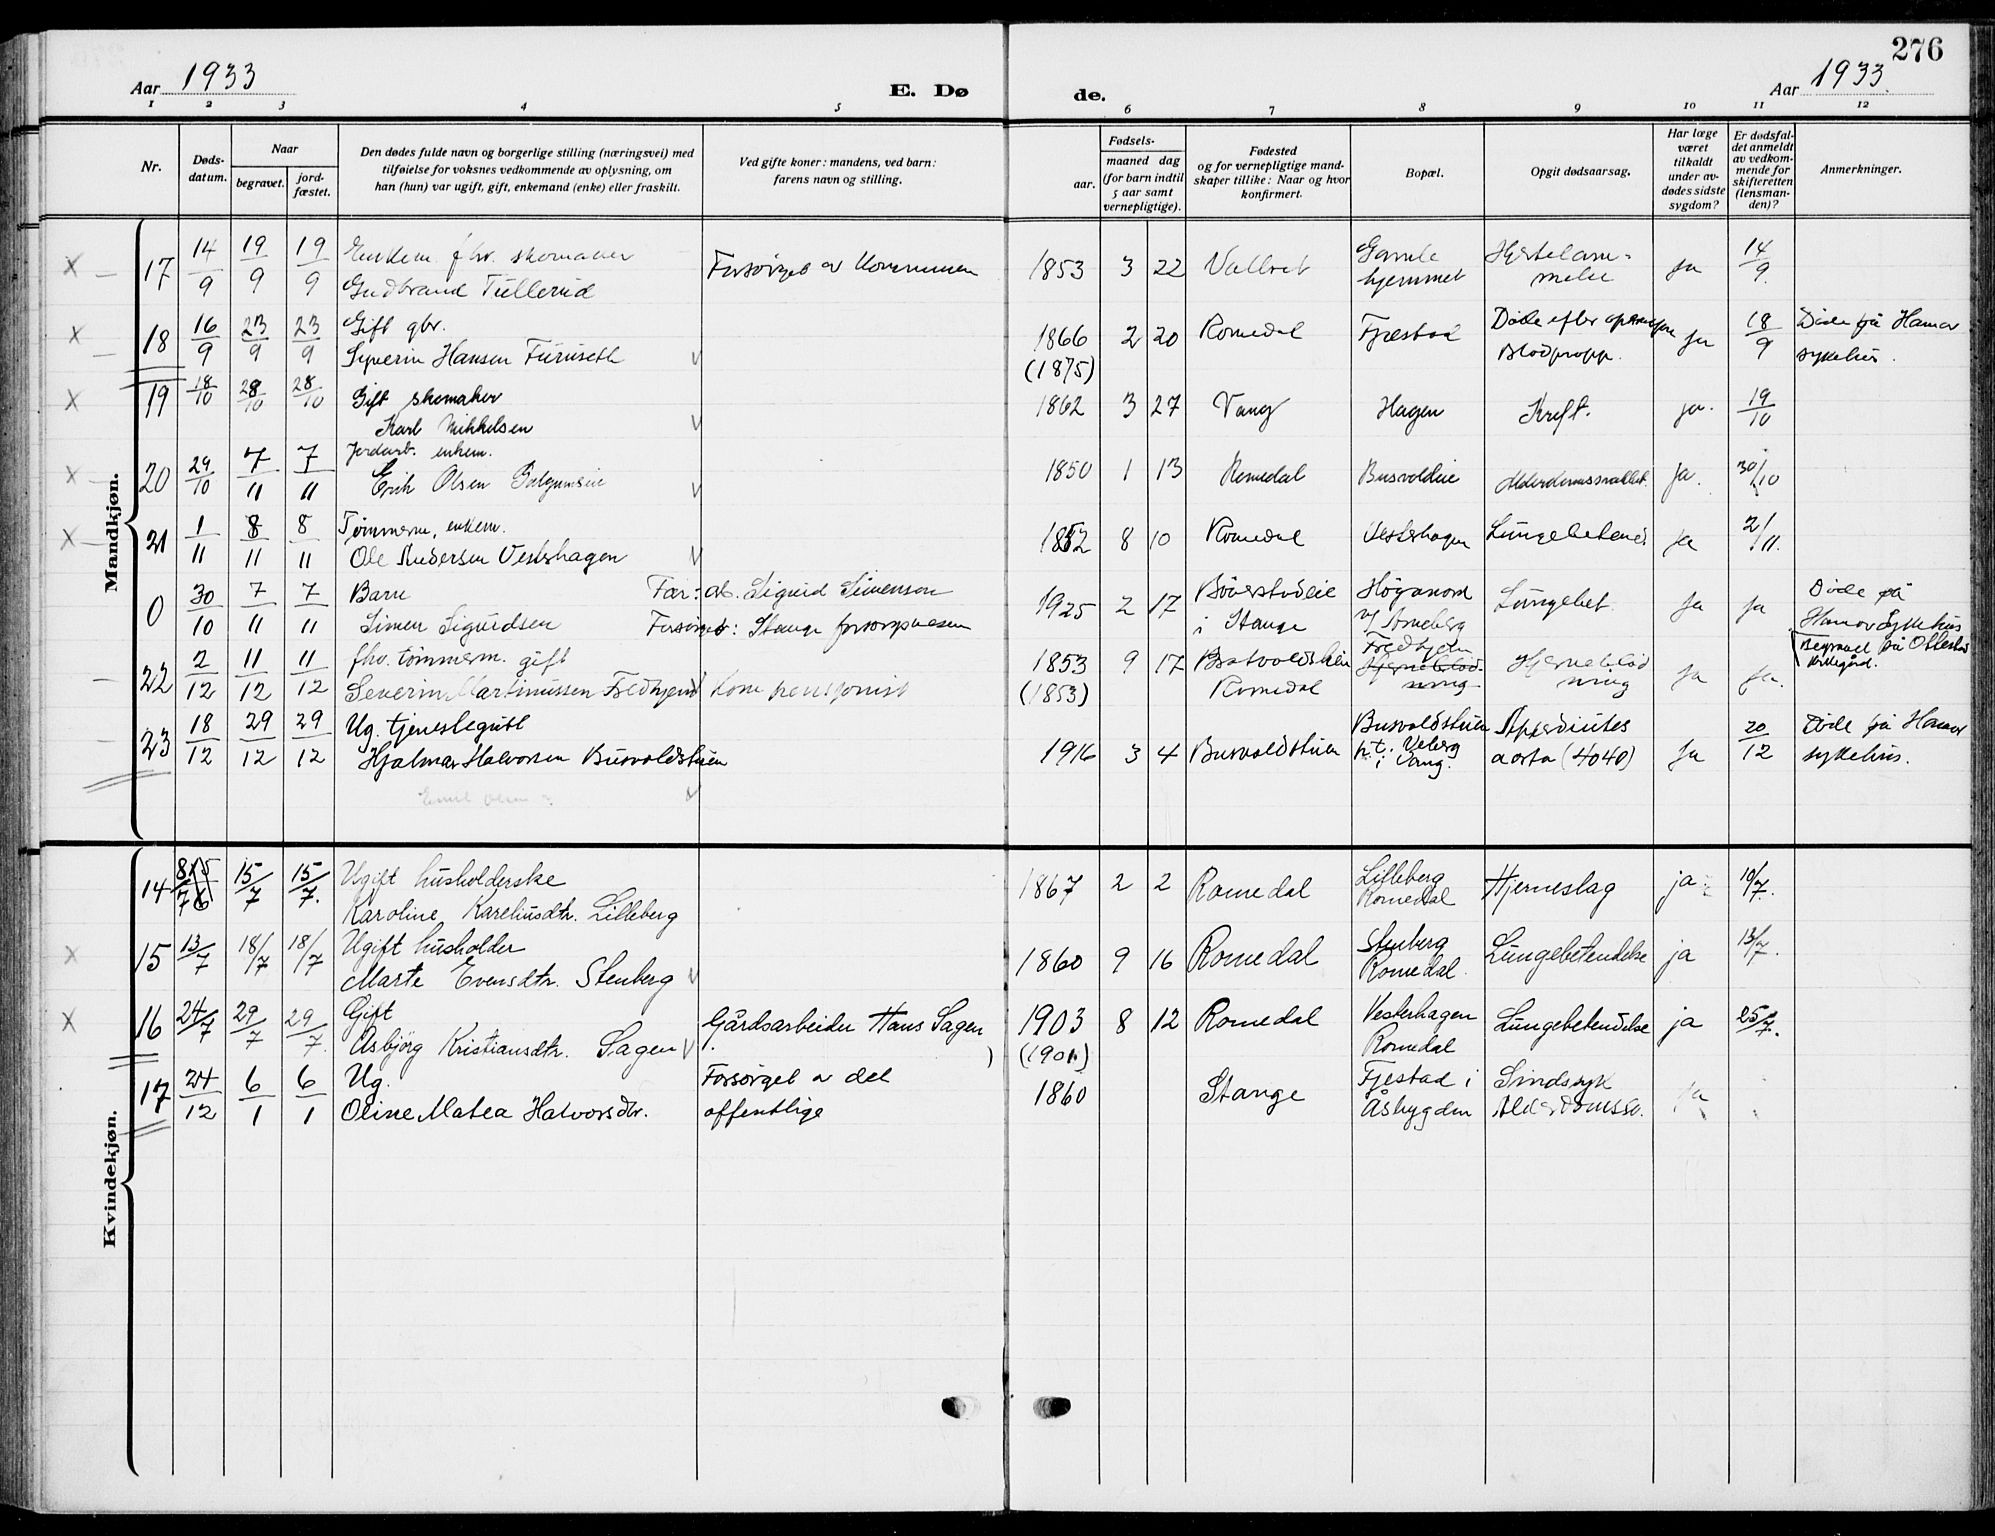 276
Aar 1933
E. Dø
de.
Aar 1933.
1 2 3 4 5 6 7 8 9 10 11 12
Nr.
Døds-
datum.
Naar
begravet.
jord-
fæstet.
Den dødes fulde navn og borgerlige stilling (næringsvei) med
tilføielse for voksnes vedkommende av oplysning, om
han (hun) var ugift, gift, enkemand (enke) eller fraskilt.
Ved gifte koner: mandens, ved barn:
farens navn og stilling.
Fødsels-
aar.
maaned dag
(for barn indtil
5 aar samt
vernepligtige).
Fødested
og for vernepligtige mand-
skaper tillike: Naar og hvor
konfirmert.
Bopæl.
Opgit dødsaarsag.
Har læge
været
tilkaldt
under av-
dødes sidste
sygdom?
Er dødsfal-
det anmeldt
av vedkom-
mende for
skifteretten
(lensman-
den)?
Anmerkninger.
Mandkjøn.
17 14/9 19/9 19/9 Enkem. fhv. skomaker
Gudbrand Tullerud
Forsørget av Kommunen
1853 3 22 Vallset
Gamle
hjemmet
Hjertelam-
melse
ja 14/9
18 16/9 23/9 23/9 Gift gbr.
Syverin Hansen Furuseth
1866 2 20 Romedal Fjæstad
(1875)
Døde efter operasjon
Blodpropp.
ja 18/9
Døde på Hamar
sykehus.
19 18/10 28/10 28/10 Gift skomaker
Karl Mikkelsen
1862 3 27 Vang Hagen Kreft. ja. 19/10
20 29/10 7/11 7/11 Jordarb. enkem.
Erik Olsen
1850 1 13 Romedal Busvoldeie ja. 30/10
21 1/11 8/11 8/11 Tømmerm, enkem.
Ole Andersen Vestshagen
1852 8 10 Romedal Vesterhagen Lungebetend ja 2/11.
0 30/10 7/11 7/11 Barn
Simen Sigurdsen
Far: arb. Sigurd Simenson
Forsørget: Stange forsorgsvesen
1925 2 17
i Stange
Lungebet. ja ja
Døde på
Hamar Sykehus
Begravet på Ottestad
kirkegård.
22 2/12 11/12 11/12 fhv. tømmerm. gift
Severin Martinussen Fredhjem
kom pensjonist
1853 9 17
(1853)
Romedal
Fredhjem
Hjerneblød-
ning
Hjerneblød
ning
ja ja.
23 18/12 29/12 29/12 Ug. tjenestegutt
Hjalmar Halvorsen Busvoldstuen
1916 3 4 Busvoldstuen
Busvoldstuen
p.t. Veberg
i Vang.
aorta (4040)
ja 20/12
Døde på Hamar
sykehus.
Kvindekjøn.
14 8/7 15/7 15/7. Ugift husholderske
Karoline Kareliusdtr. Lilleberg
1867 2 2 Romedal
Lilleberg
Romedal
Hjerneslag ja 10/7.
15 13/7 18/7 18/7 Ugift husholder
Marte Evensdtr. Stenberg
1860 9 16 Romedal
Stenberg
Romedal.
Lungebetendelse ja 13/7.
16 24/7 29/7 29/7. Gift
Asbjörg Kristiansdtr. Sagen
Gårdsarbeider Hans Sagen
1903 8 12 Romedal
(1901)
Vesterhagen
Romedal
Lungebetendelse ja 25/7.
17 24/12 6/1 6/1 Ug.
Oline Matea Halvorsdtr.
Forsörget av det
offentlige
1860 Stange
Fjestad i
Åsbygden
Sindssyk
Alderdomssv.
ja